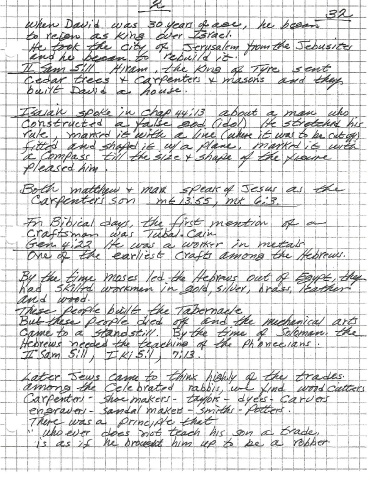 2
32
when David was 30 years of age, he began
to reign as King over Israel.
He took the city of Jerusalem from the Jebusites
and he began to rebuild it.
II Sam 5:11 Hiram, the King of Tyre sent
Cedar trees & Carpenters & masons and they
built David a house.
Isaiah spoke in Chap 44:13 about a man who
Constructed a false god (idol) He stretched his
rule, marked it with a line (where it was to be cut off)
fitted and shaped it w/a plane, marked it with
a Compass till the size & shape of the figure
pleased him.
Both matthew & mark speak of Jesus as the
Carpenters son mt 13:55, mk 6:3
In Biblical days, the first mention of a
Craftsman was Tubal-Cain
Gen 4:22 He was a worker in metals
One of the earliest Crafts among the Hebrews.
By the time moses led the Hebrews out of Egypt, they
had skilled workmen in gold, silver, brass, leather
and wood.
These people built the Tabernacle
But these people died off and the mechanical arts
Came to a stand still. By the time of Solomon the
Hebrews needed the teaching of the Phonecians.
II Sam 5:11, I Ki 5:1, 7:13.
Later Jews came to think highly of the trades.
among the Celebrated rabbis, we find wood Cutters
Carpenters - shoe makers - taylors - dyers - Carvers
engravers - sandal maker - smiths - Potters.
There was a principle that
"who ever does not teach his son a trade,
is as if he brought him up to be a robber